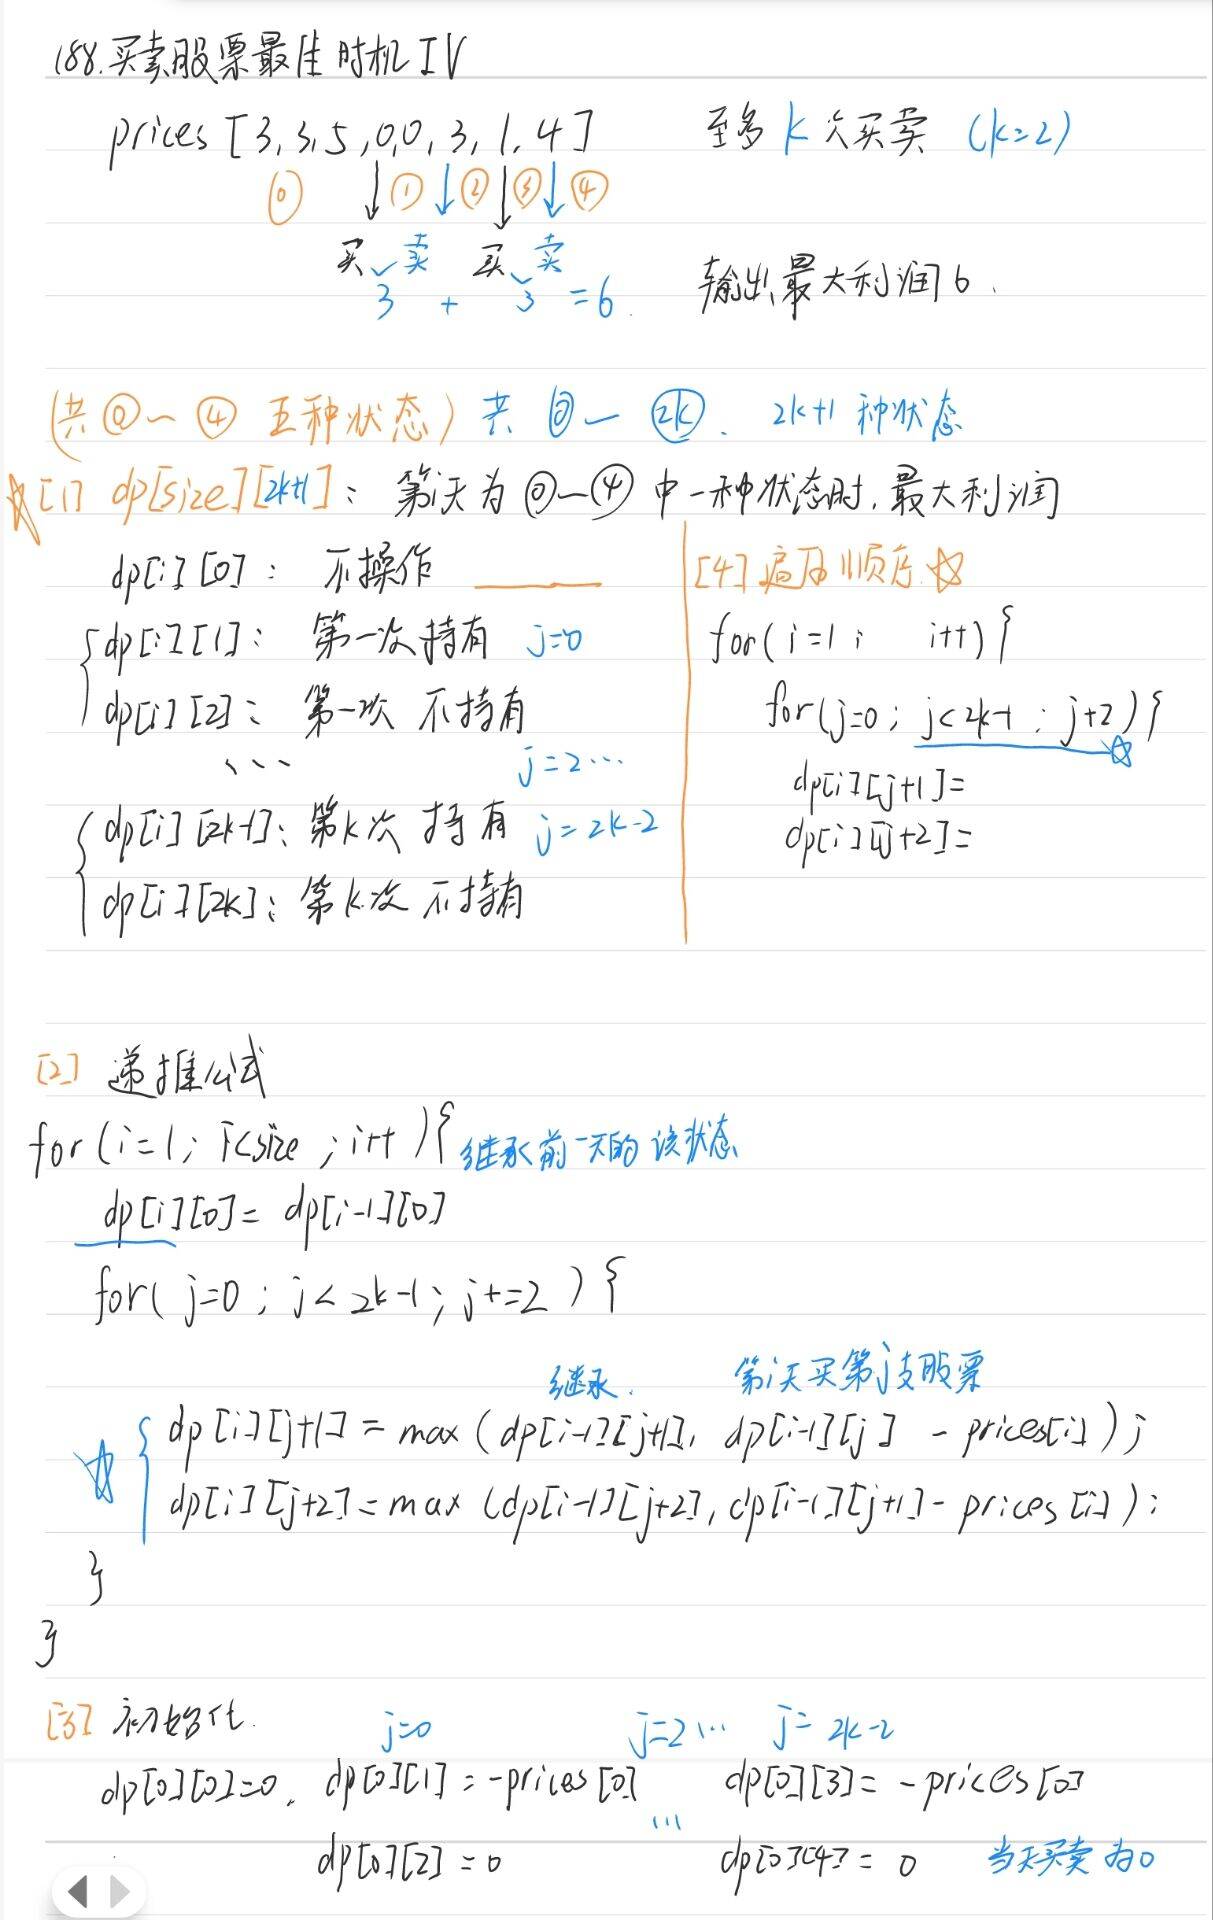 188.买卖股票最佳时机IV
prices [3,3,5,0,0,3,1,4] 至多k次买卖 (k=2)
⓪ ① ② ③ ④
买 卖 买 卖
3 + 3 =6. 输出最大利润6.
(共⓪~④ 五种状态) 共 ⓪— 2k. 2k+1 种状态
[1] dp[size][2k+1]: 第i天为⓪—④中一种状态时,最大利润
dp[i][0]: 不操作
dp[i][1]: 第一次持有 j=0
dp[i][2]: 第一次 不持有
... j=2...
dp[i][2k-1]: 第k次 持有 j=2k-2
dp[i][2k]: 第k次 不持有
[4] 遍历顺序
for(i=1; i++){
for(j=0; j<2k-1; j+2){
dp[i][j+1]=
dp[i][j+2]=
[2] 递推公式
for(i=1; i<size; i++){ 继承前一天的该状态
dp[i][0]= dp[i-1][0]
for( j=0; j<2k-1; j+=2 ){
继承. 第i天买第j支股票
dp[i][j+1] = max(dp[i-1][j+1], dp[i-1][j] - prices[i]);
dp[i][j+2]=max(dp[i-1][j+2], dp[i-1][j+1]- prices[i]);
}
}
[3] 初始化.
j=0 j=2... j= 2k-2
dp[0][0]=0. dp[0][1] = -prices[0] dp[0][3]= -prices[0]
...
dp[0][2] = 0 dp[0][4] = 0 当天买卖为0